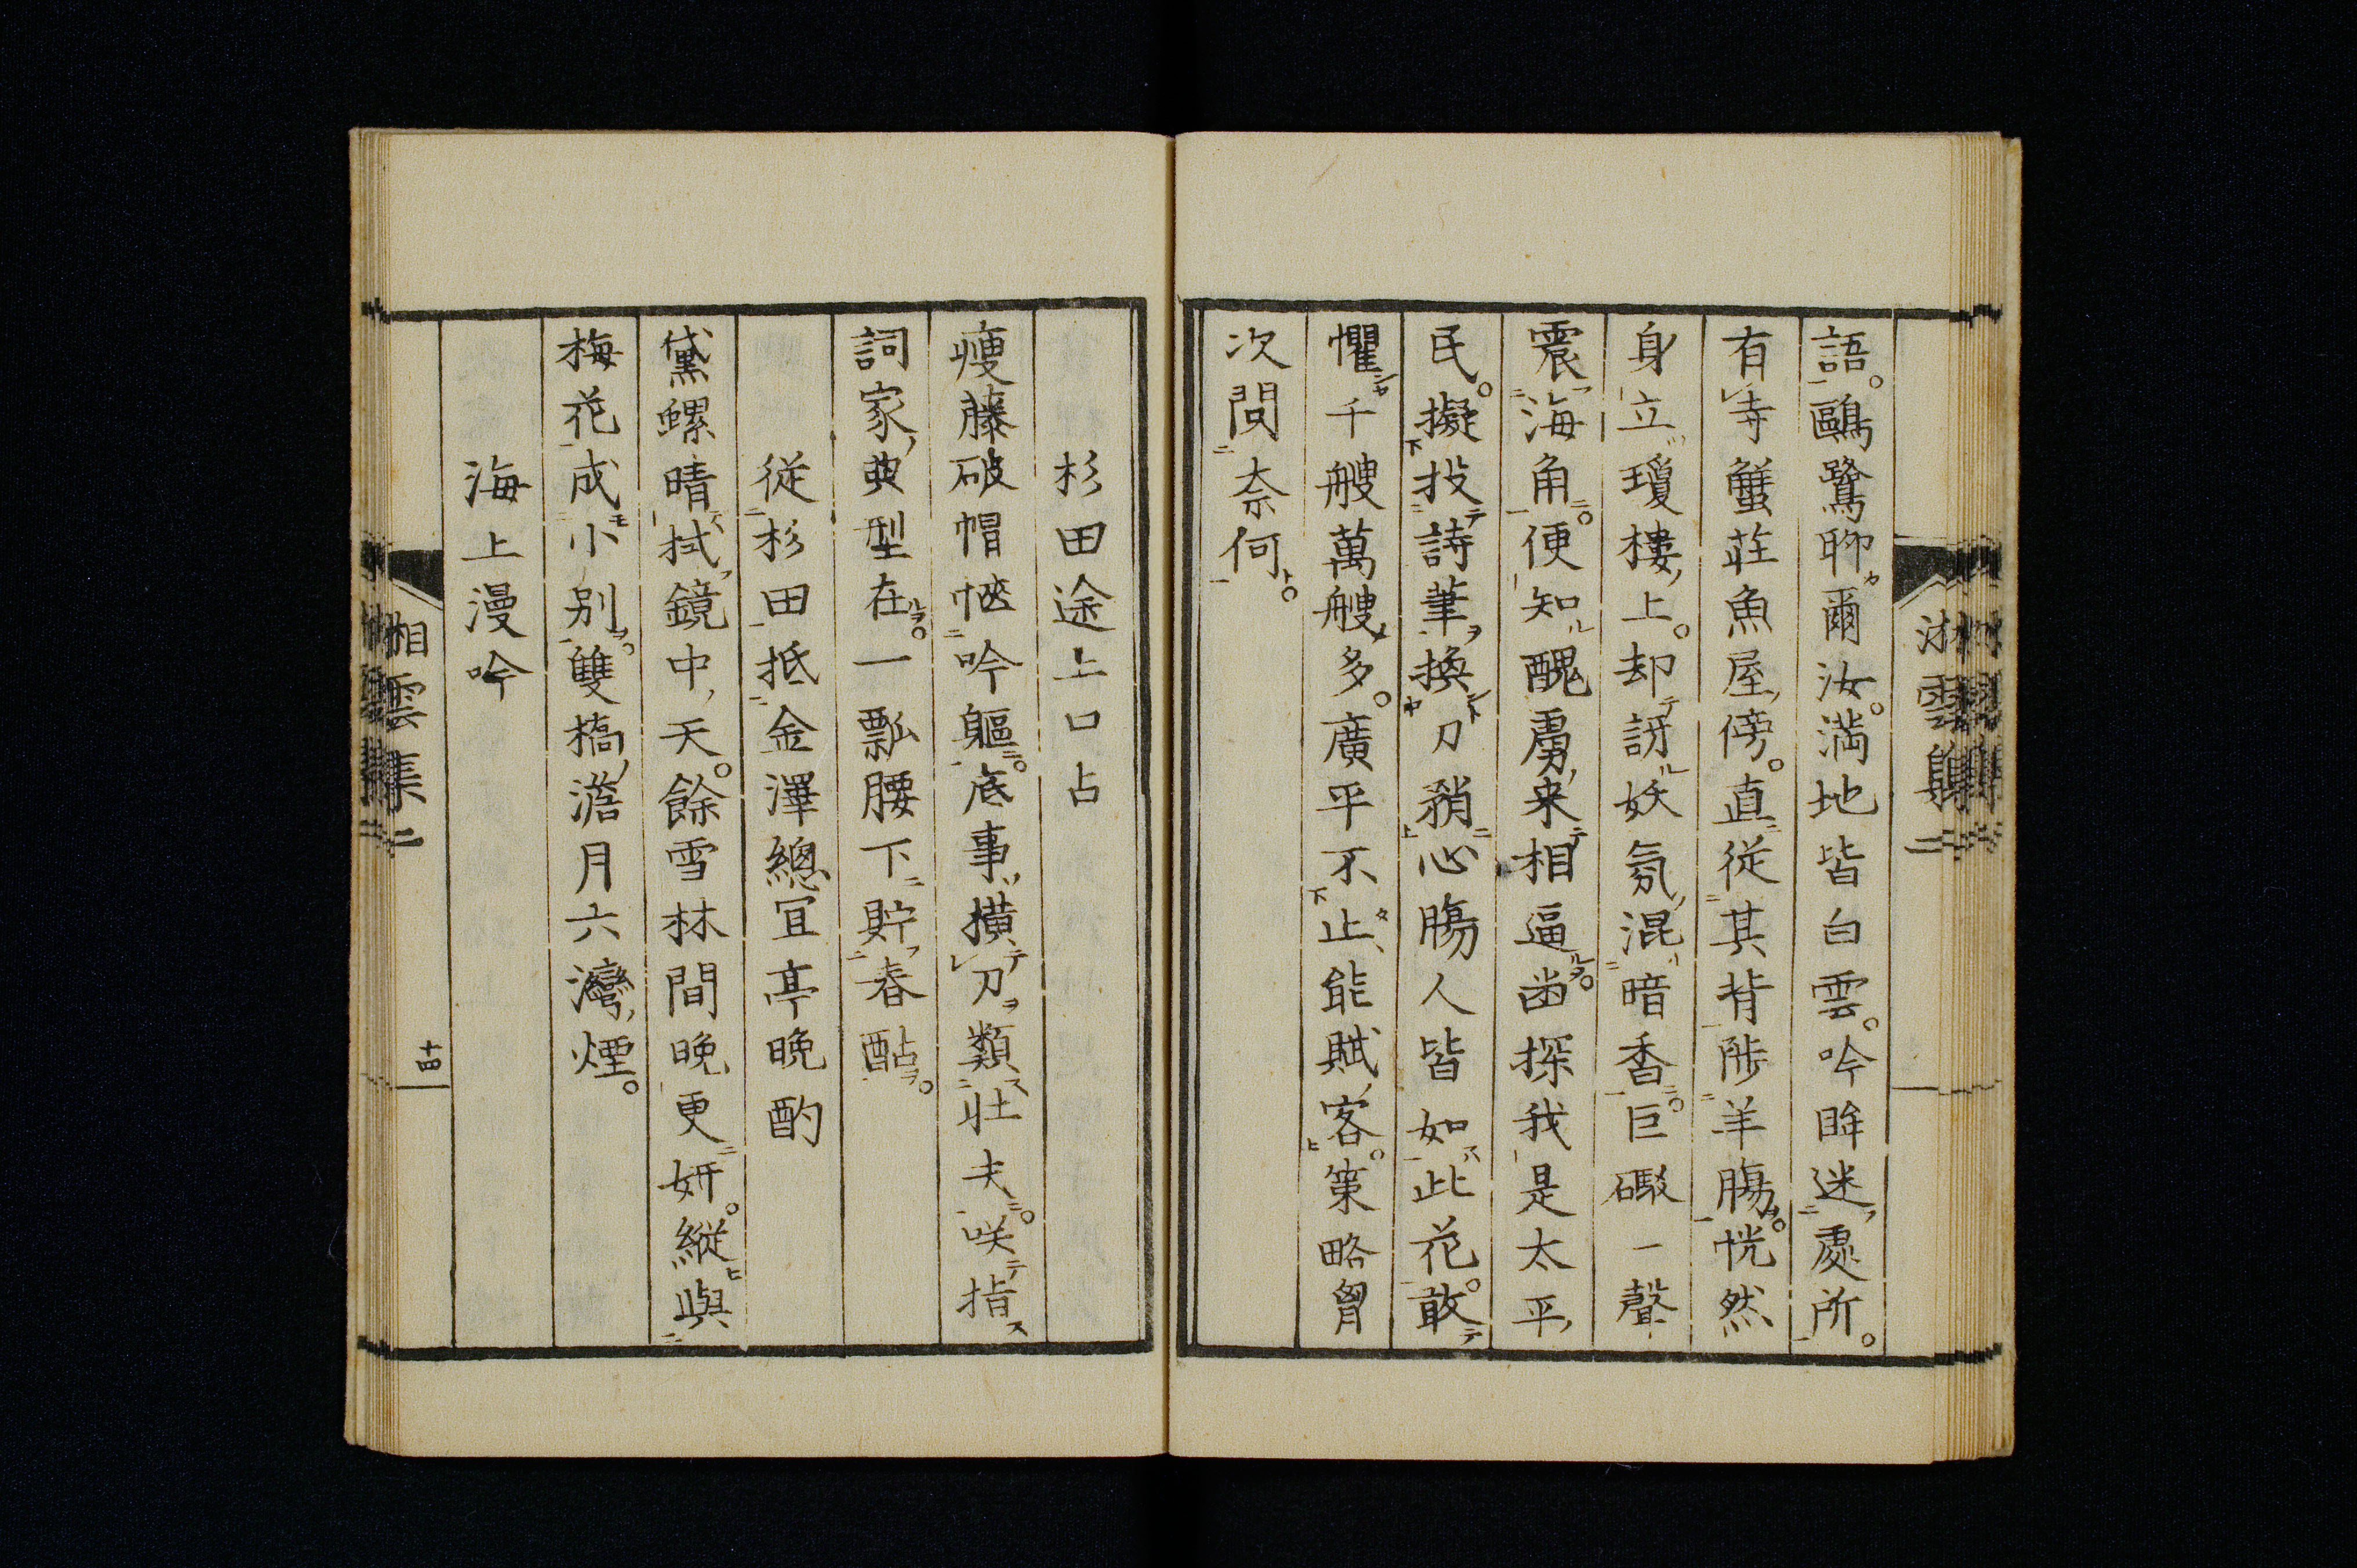 語。鷗鷺聊爾汝。滿地皆白雲。吟眸迷處所。
有寺蟹莊魚屋傍。直從其背陟羊腸。恍然
身立瓊樓上。却訝妖氛混暗香。巨礮一聲
震海角。便知醜虜来相逼。齒探我是太平
民。擬投詩筆換刀矟。心腸人皆如此花。敢
懼千艘萬艘多。廣平不止能賦客。策略胷
次問奈何。
杉田途上口占
瘦藤破帽愜吟軀。底事橫刀類壯夫。咲指
詞家典型在。一瓢腰下貯春酤。
從杉田抵金澤總冝亭晩酌
黛螺晴拭鏡中天。餘雪林間晩更妍。縱與
梅花成小別。雙橋澹月六灣煙。
海上漫吟
湘雲集二
十四